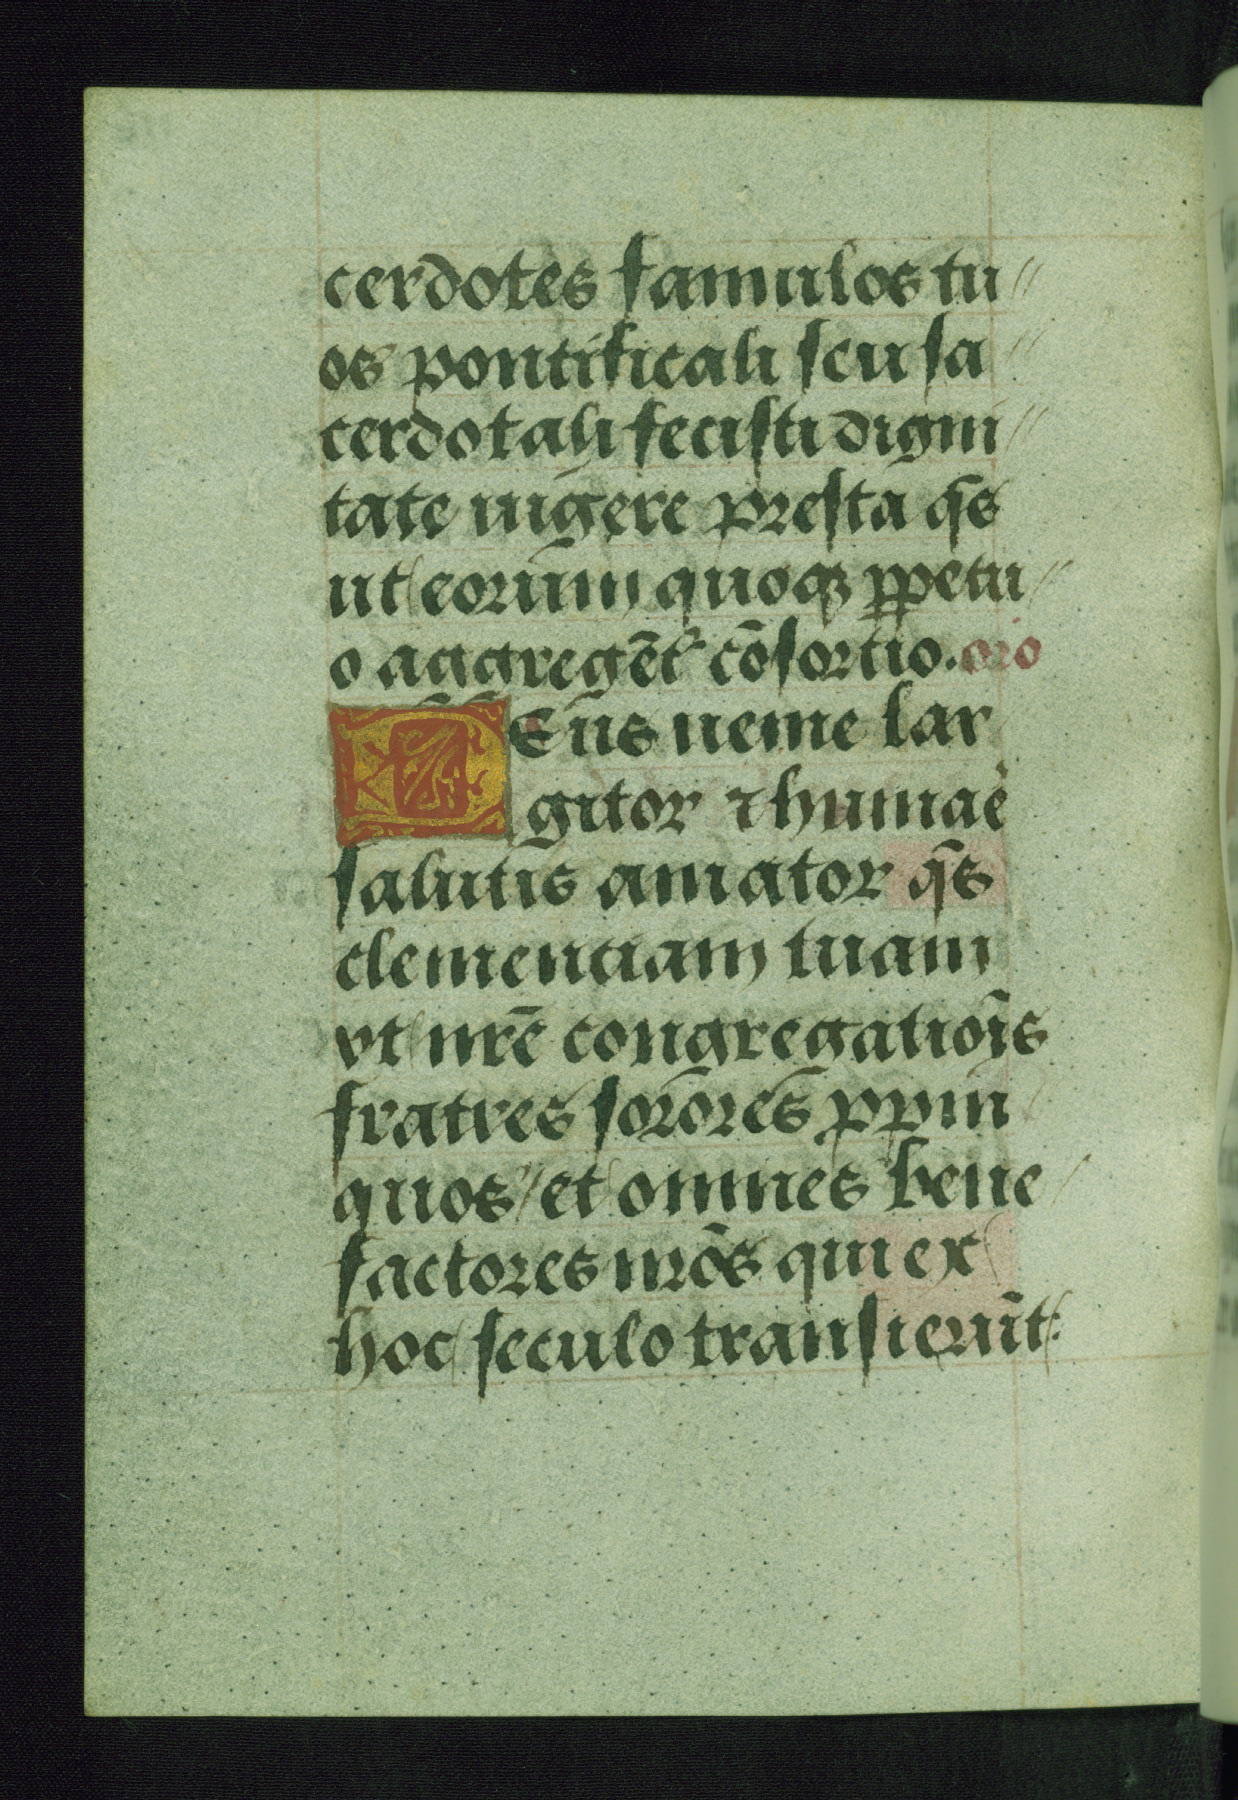 cerdotes famulos tu//
os pontificali seu sa//
cerdotali fecisti digni//
tate uigere presta q̄s
ut eorum quoqȝ ꝑpetu//
o aggregēt᷑ cōsortio. oro
DEus uenie lar
gitor ⁊ humaē
salutis amator q̄s
clementiam tuam
vt nr̄e congregatiōis
fratres sorores ppin/
quos et omnes bene/
factores nrōs qui ex
hoc seculo transierūt: